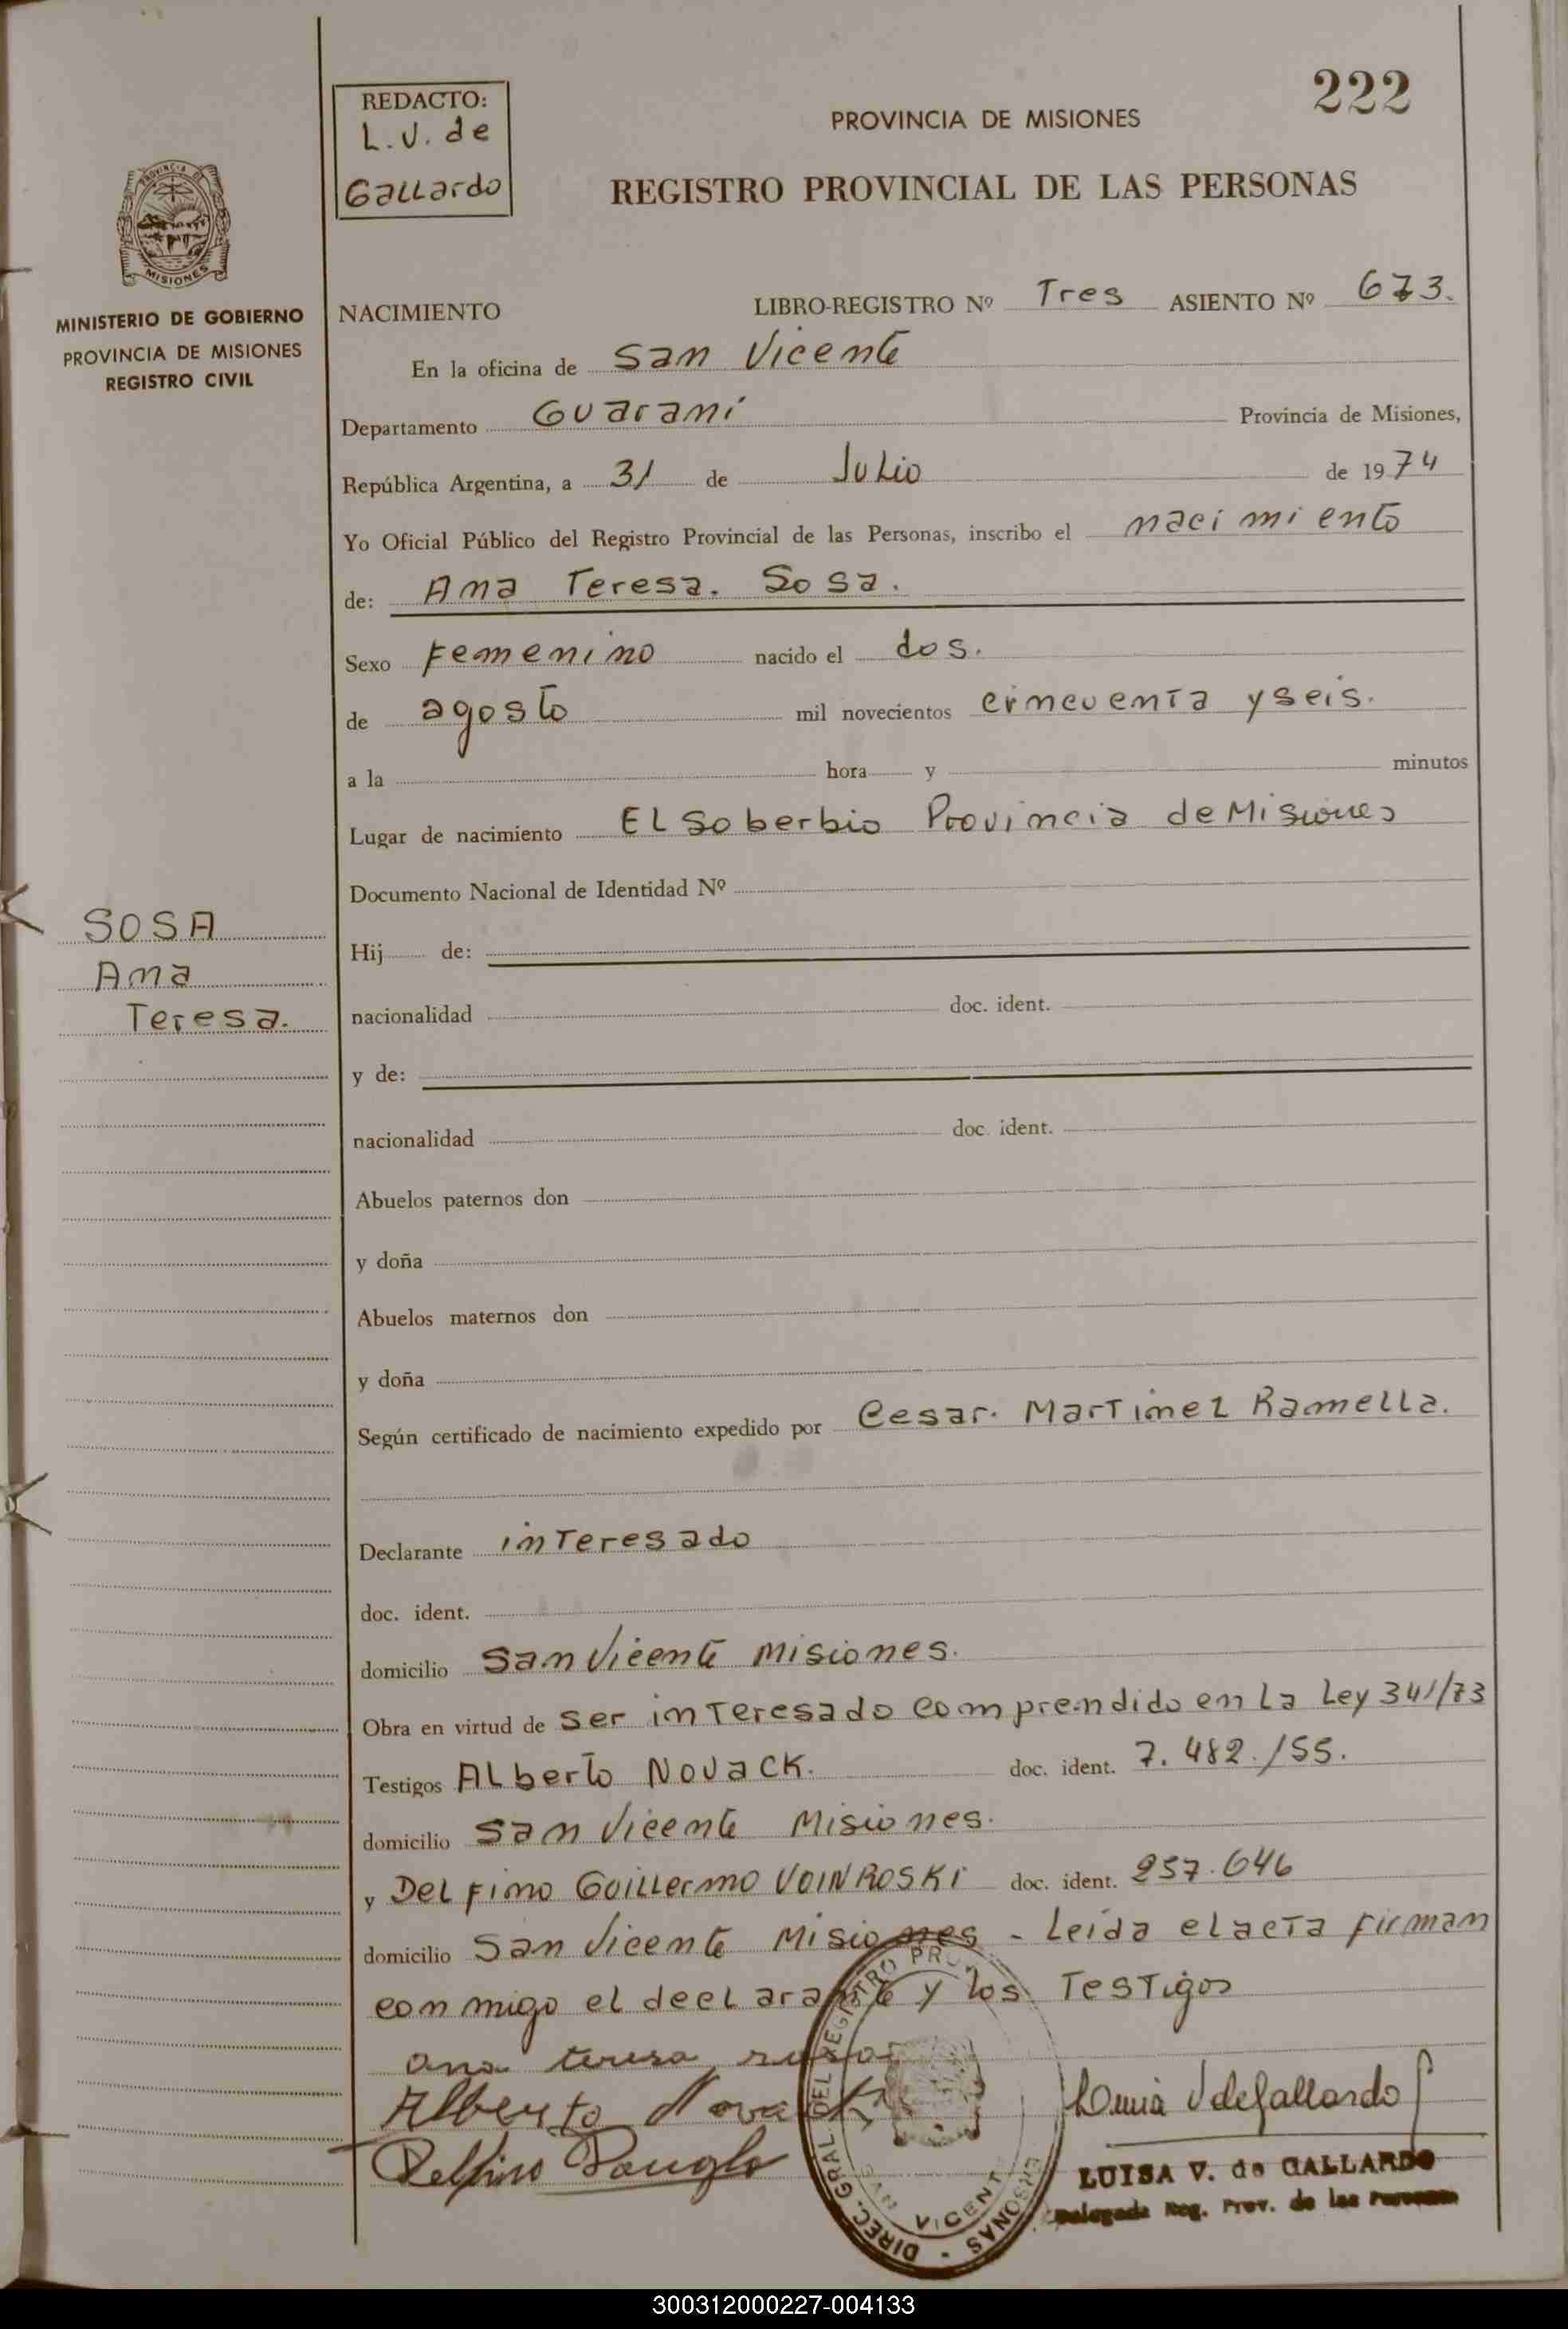 222
REDACTO:
L.V. de
Gallardo
PROVINCIA DE MISIONES
REGISTRO PROVINCIAL DE LAS PERSONAS
PROVINCIA DE
MISIONES
MINISTERIO DE GOBIERNO
PROVINCIA DE MISIONES
REGISTRO CIVIL
NACIMIENTO LIBRO-REGISTRO Nº Tres ASIENTO Nº 673.
En la oficina de San Vicente
Departamento Guaraní Provincia de Misiones,
República Argentina, a 31 de Julio de 1974
Yo Oficial Público del Registro Provincial de las Personas, inscribo el nacimiento
de: Ana Teresa. Sosa.
Sexo Femenino nacido el dos.
de agosto mil novecientos cincuenta y seis.
a la hora y minutos
Lugar de nacimiento El Soberbio Provincia de Misiones
Documento Nacional de Identidad Nº
SOSA
Ana
Teresa.
Hij de:
nacionalidad doc. ident.
y de:
nacionalidad doc. ident.
Abuelos paternos don
y doña
Abuelos maternos don
y doña
Según certificado de nacimiento expedido por Cesar. Martinez Ramella.
Declarante interesado
doc. ident.
domicilio San Vicente Misiones.
Obra en virtud de ser interesado comprendido en la Ley 341/73
Testigos Alberto Novack. doc. ident. 7.482.155.
domicilio San Vicente Misiones.
y Delfino Guillermo VOINROSKI doc. ident. 957.646
domicilio San Vicente Misiones - Leida el acta firman
conmigo el declarante y los Testigos
ana teresa sosa
Alberto Novack
Delfino
DIREC. GRAL. DEL REGISTRO PROV.
PERSONAS
SAN VICENTE
LUISA V. de GALLARDO
Delegada Reg. Prov. de las Personas
300312000227-004133